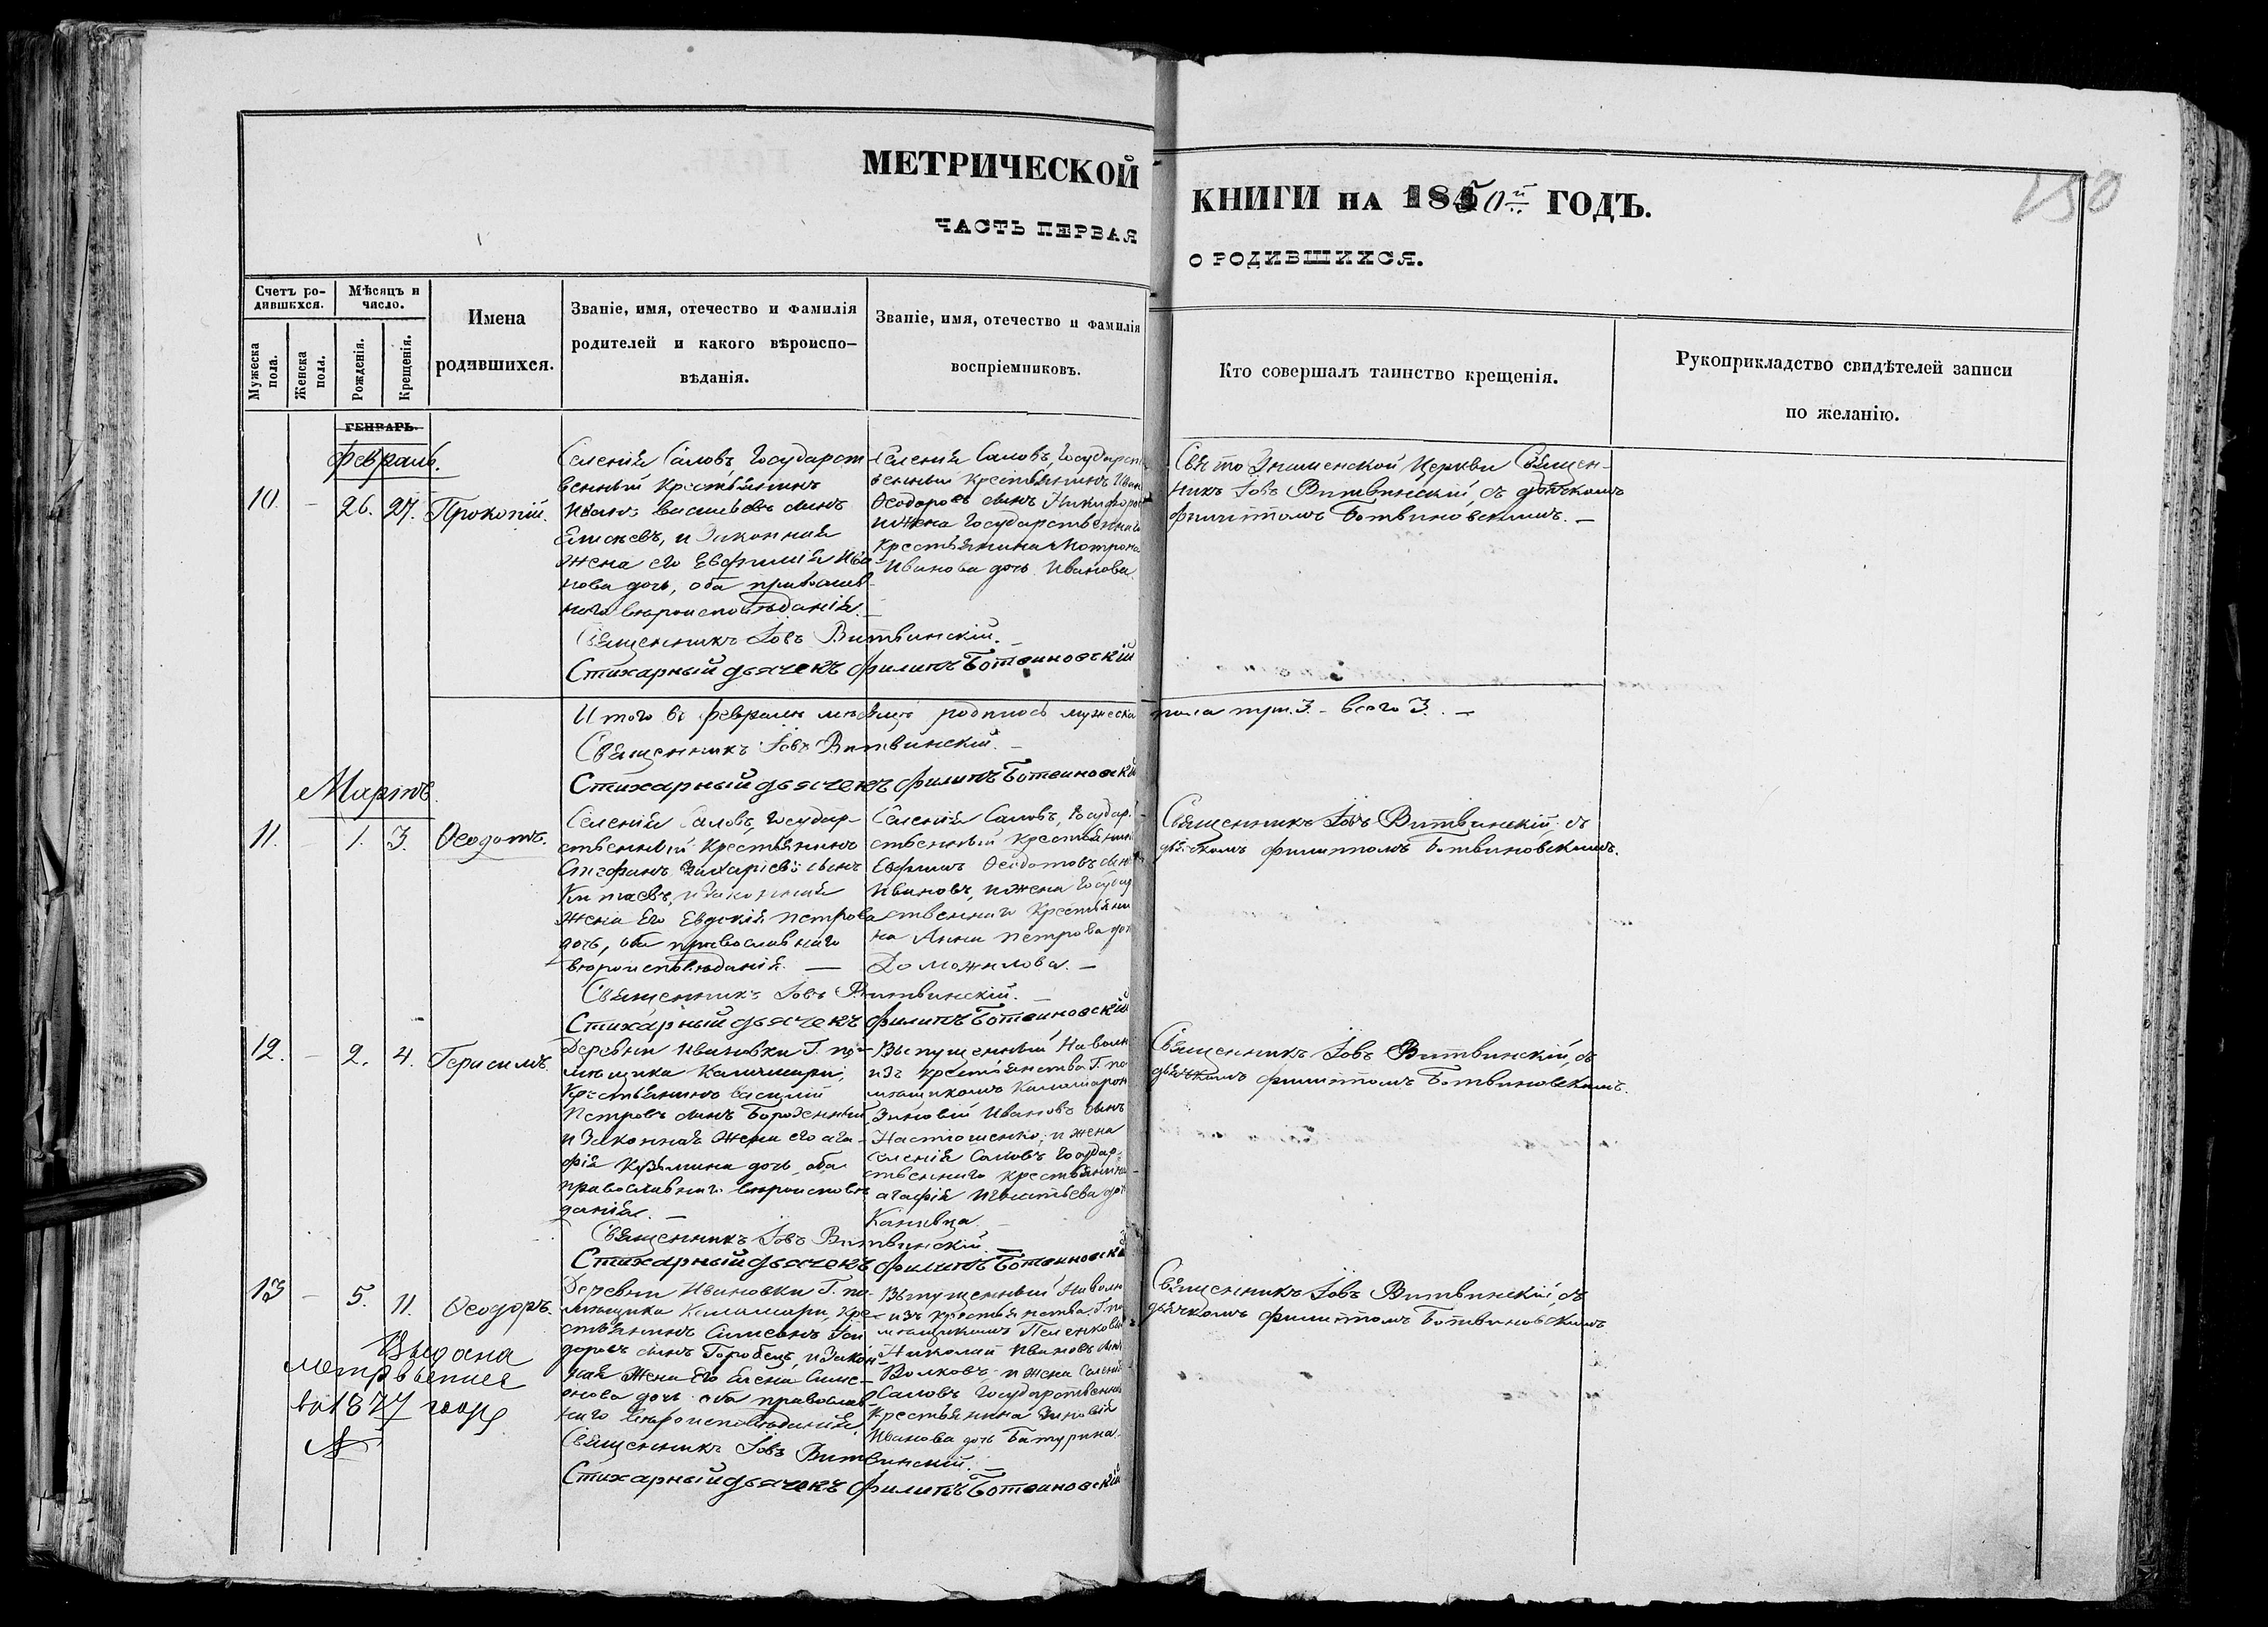 МЕТРИЧЕСКОЙ
КНИГИ НА 1850й ГОДЪ.
150
ЧАСТЬ ПЕРВАЯ
О РОДИВШИХСЯ.
Счетъ родившихся.
Мужеска пола.
Женска пола.
Мѣсяцъ и число.
Рожденія.
Крещенія.
Имена
родившихся.
Званіе, имя, отечество и фамилія
родителей и какого вѣроиспо-
вѣданія.
Званіе, имя, отечество и фамилія
воспріемниковъ.
Кто совершалъ таинство крещенія.
Рукоприкладство свидѣтелей записи
по желанію.
ГЕНВАРЬ.
Февраль.
10. – 26. 27. Прокопій.
Селенія Саловъ, Государст
венный Крестьянинъ
Иванъ Васильевъ сынъ
Елисеевъ, и Законная
жена его Евфимія Ива
нова дочь, оба православ
наго вѣроисповѣданія. –
Селенія Саловъ, Государст
венный Крестьянинъ Иванъ
Ѳеодоровъ сынъ Никифоровъ
и жена Государственнаго
Крестьянина Мотрона
Иванова дочь Иванова.
Свято Знаменской Церкви Священ-
никъ Іовъ Витвинскій, съ дьячкомъ
Филиппомъ Ботвиновскимъ. –
Священникъ Іовъ Витвинскій. –
Стихарный дьячекъ Филипъ Ботвиновскій
Итого въ Февралѣ мѣсяцѣ родилось мужеска пола три. 3. – всего 3. –
Священникъ Іовъ Витвинскій. –
Стихарный дьячекъ Филипъ Ботвиновскій
Мартъ.
11. – 1. 3. Ѳеодотъ.
Селенія Саловъ, Государ-
ственный Крестьянинъ
Стефанъ Захаріевъ сынъ
Китаевъ, и Законная
жена Его Евдокія Петрова
дочь, оба православнаго
вѣроисповѣданія. –
Селенія Саловъ, Государ-
ственный Крестьянинъ
Евфимъ Ѳеодотовъ сынъ
Ивановъ, и жена Государ
ственнаго Крестьяни
на Анна Петрова дочь
Доможилова. –
Священникъ Іовъ Витвинскій, съ
дьячкомъ Филиппомъ Ботвиновскимъ.
Священникъ Іовъ Витвинскій. –
Стихарный дьячекъ Филипъ Ботвиновскій
12. – 2. 4. Герасимъ.
Деревни Ивановки Г. по-
мѣщика Каламари,
Крестьянинъ Василій
Петровъ сынъ
и Законная жена его Ага-
фія Кузьмина дочь, оба
православнаго вѣроисповѣ
данія. –
Выпущенный На волю
изъ крестьянства Г. по
мѣщикомъ
Зиновій Ивановъ сынъ
Настошенко, и жена
Селенія Саловъ Государ-
ственнаго Крестьянина
Агафія Игнатьева дочь
Канивца. –
Священникъ Іовъ Витвинскій, съ
дьячкомъ Филиппомъ Ботвиновскимъ.
Священникъ Іовъ Витвинскій. –
Стихарный дьячекъ Филипъ Ботвиновскій
13 – 5. 11. Ѳеодоръ.
Деревни Ивановки Г. по-
мѣщика Каламари, Кре-
стьянинъ Симеонъ
доровъ сынъ Горобецъ, и Закон
ная Жена Его Елена Симе-
онова дочь оба православ
наго вѣроисповѣданія.
Выпущенный На волю
изъ крестьянства Г. по
мѣщикомъ
Николай Ивановъ сынъ
Волковъ, и жена Селенія
Саловъ Государственнаго
Крестьянина Зиновія
Иванова дочь Батурина.
Священникъ Іовъ Витвинскій, съ
дьячкомъ Филиппомъ Ботвиновскимъ
Выдана
метр
въ 1877 году
Священникъ Іовъ Витвинскій. –
Стихарный дьячекъ Филипъ Ботвиновскій